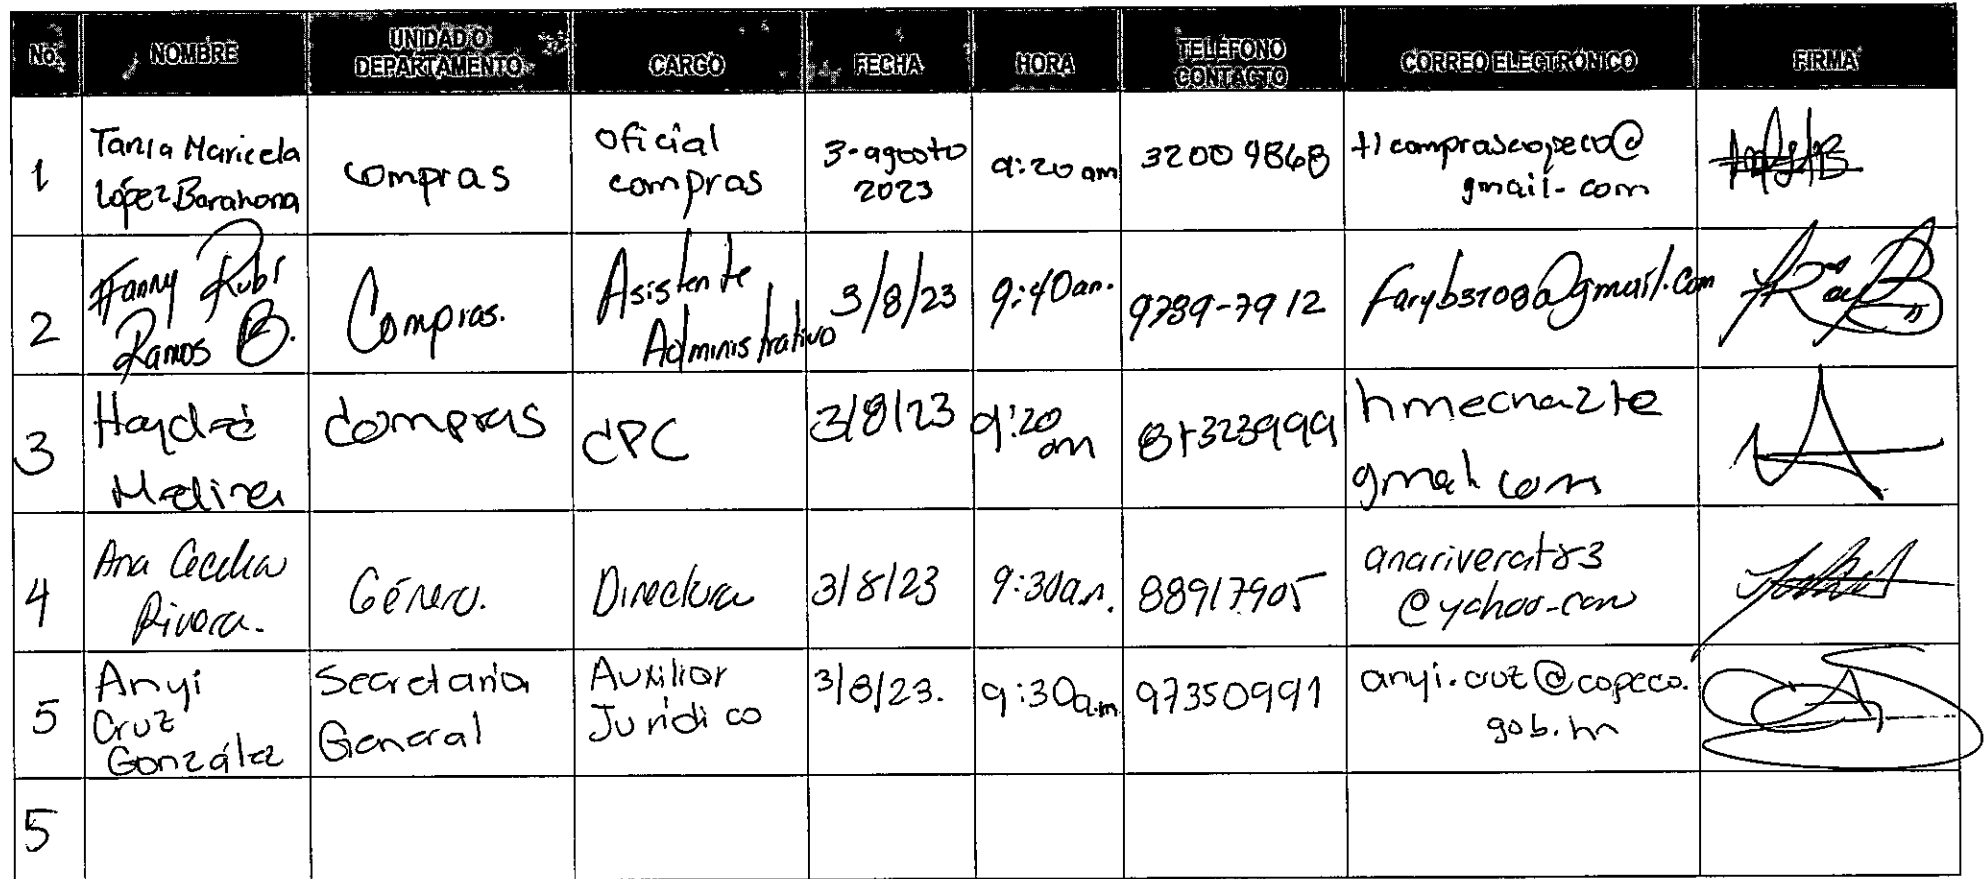 No. NOMBRE UNIDAD O DEPARTAMENTO CARGO FECHA HORA TELÉFONO CONTACTO CORREO ELECTRÓNICO FIRMA
1 Tania Maricela López Barahona compras oficial compras 3-agosto 2023 9:20 am 3200 9868 tlcomprascopeco@gmail.com
2 Fanny Rubi Ramos B. Compras. Asistente Administrativo 3/8/23 9:40 am. 9789-7912
3 Haydeé Medina compras CPC 3/8/23 9:20 am
4 Ana Cecilia Rivera. Género. Directora 3/8/23 9:30 a.m. 88917905 @yahoo.com
5 Anyi Cruz González Secretaria General Auxiliar Juridico 3/8/23. 9:30 a.m 97350991 anyi.cruz@copeco.gob.hn
5